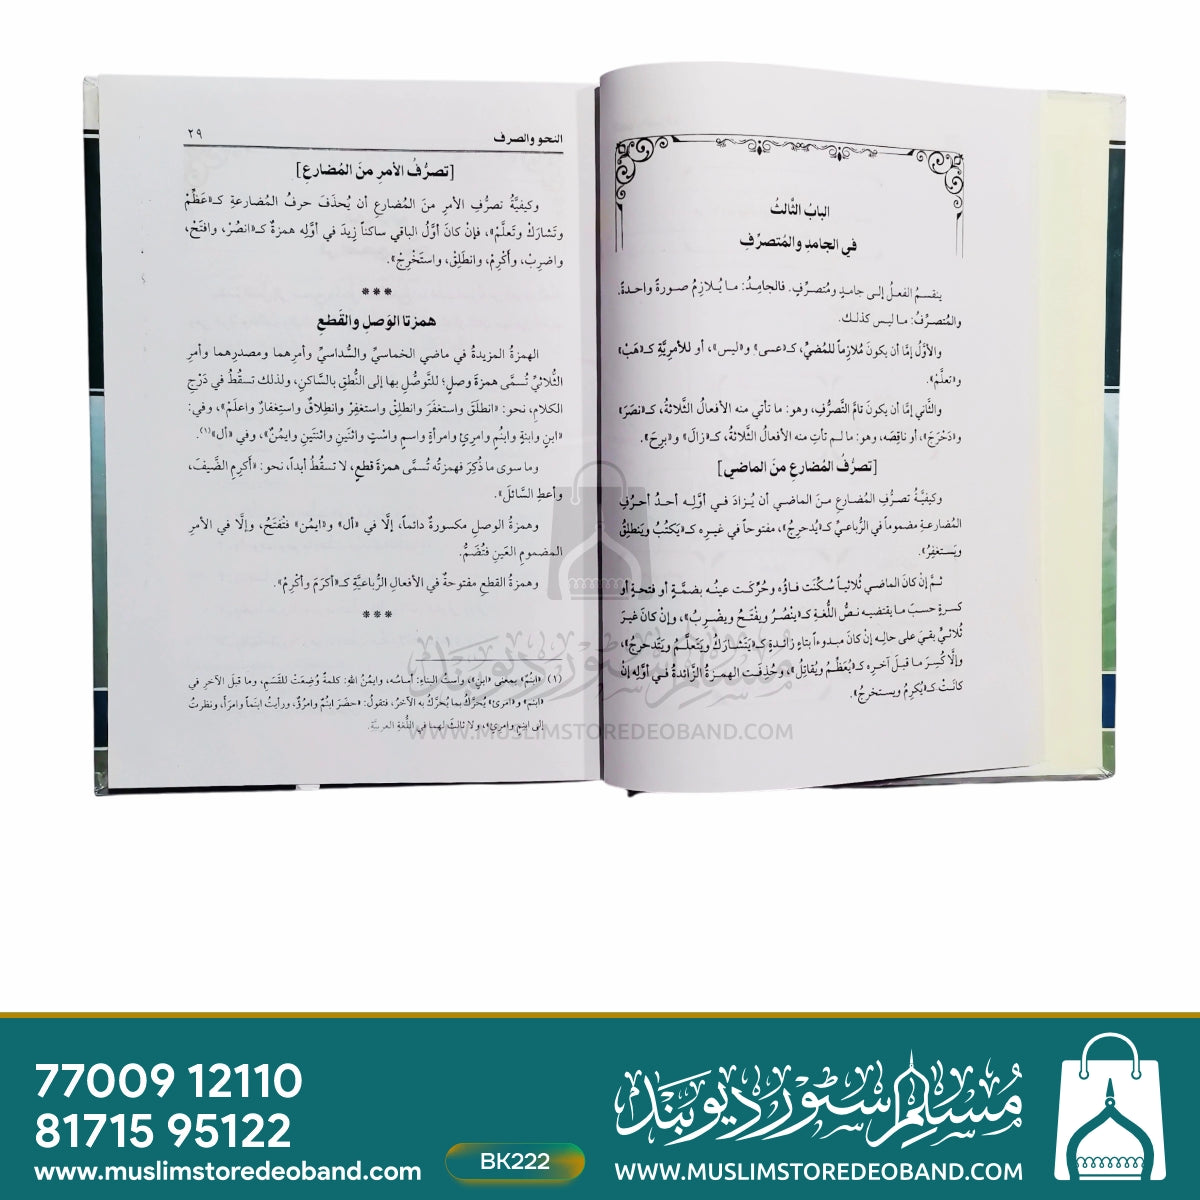 البابُ الثَّالثُ
في الجامدِ والمُتصرِّفِ
ينقسمُ الفعلُ إلى جامدٍ ومُتصرِّفٍ. فالجامِدُ: ما يُلازِمُ صورةً واحدةً.
والمُتصرِّفُ: ما ليس كذلك.
والأوَّلُ إمَّا أن يكونَ مُلازِماً للمُضيِّ، كـ«عسى» و«ليس»، أو للأمريَّةِ كـ«هَبْ»
و«تعلَّمْ».
والثَّاني إمَّا أن يكونَ تامَّ التَّصرُّفِ، وهو: ما تأتي منه الأفعالُ الثَّلاثةُ، كـ«نصَرَ»
و«دَحْرَجَ»، أو ناقِصَه، وهو: ما لم تأتِ منه الأفعالُ الثَّلاثةُ، كـ«زالَ» و«برِحَ».
[تصرُّفُ المُضارعِ منَ الماضي]
وكيفيَّةُ تصرُّفِ المُضارعِ منَ الماضي أن يُزادَ في أوَّلِه أحدُ أحرُفِ
المُضارعةِ مضموماً في الرُّباعيِّ كـ«يُدحرِجُ»، مفتوحاً في غيرِه كـ«يَكتُبُ ويَنطلِقُ
ويَستغفِرُ».
ثمَّ إنْ كانَ الماضي ثُلاثيّاً سُكِّنَت فاؤُه وحُرِّكَت عينُه بضمَّةٍ أو فتحةٍ أو
كسرةٍ حسبَ ما يقتضيه نصُّ اللُّغةِ كـ«ينْصُرُ ويفْتَحُ ويضْرِبُ»، وإنْ كانَ غيرَ
ثُلاثيٍّ بقيَ على حالِه إنْ كانَ مبدوءاً بتاءٍ زائدةٍ كـ«يَتشارَكُ ويَتعلَّمُ ويَتدحرجُ»،
وإلَّا كُسِرَ ما قبلَ آخرِه كـ«يُعظِّمُ ويُقاتِلُ»، وحُذِفَت الهمزةُ الزَّائدةُ في أوَّلِه إنْ
كانَت كـ«يُكرِمُ ويستخرِجُ».
النحو والصرف ٢٩
[تصرُّفُ الأمرِ منَ المُضارعِ]
وكيفيَّةُ تصرُّفِ الأمرِ منَ المُضارعِ أن يُحذَفَ حرفُ المُضارعةِ كـ«عَظِّمْ
وتَشارَكْ وتَعلَّمْ»، فإنْ كانَ أوَّلُ الباقي ساكناً زِيدَ في أوَّلِه همزةٌ كـ«انصُرْ، وافتَحْ،
واضرِبْ، وأَكْرِمْ، وانطَلِقْ، واستَخْرِجْ».
***
همزتا الوَصلِ والقَطعِ
الهمزةُ المزيدةُ في ماضي الخماسيِّ والسُّداسيِّ وأمرِهما ومصدرِهما وأمرِ
الثُّلاثيِّ تُسمَّى همزةَ وصلٍ؛ للتَّوصُّلِ بها إلى النُّطقِ بالسَّاكنِ، ولذلك تسقُطُ في دَرْجِ
الكلامِ، نحو: «انطلَقَ واستغفَرَ، وانطلِقْ واستغفِرْ وانطلاقٌ واستِغفارٌ واعلَمْ»، وفي:
«ابنٍ وابنةٍ وابنُمٍ وامرِئٍ وامرأةٍ واسمٍ واسْتٍ واثنَينِ واثنتَينِ وايمُنٍ»، وفي «أل»(١).
وما سوى ما ذُكِرَ فهمزتُه تُسمَّى همزةَ قطعٍ، لا تسقُطُ أبداً، نحو: «أكرِمِ الضَّيفَ،
وأعطِ السَّائلَ».
وهمزةُ الوصلِ مكسورةٌ دائماً، إلَّا في «أل» و«ايمُن» فتُفتَحُ، وإلَّا في الأمرِ
المضمومِ العَينِ فتُضَمُّ.
وهمزةُ القطعِ مفتوحةٌ في الأفعالِ الرُّباعيَّةِ كـ«أكرَمَ وأكْرِمْ».
***
(١) «ابنُم» بمعنى «ابن»، واستُ البناءِ: أساسُه، وايمُنُ اللهِ: كلمةٌ وُضِعَتْ للقَسَمِ، وما قبلَ الآخرِ في
«ابنم» و«امرئ» يُحرَّكُ بما يُحرَّكُ به الآخرُ، فتقولُ: «حضَرَ ابنُمٌ وامرُؤٌ، ورأيتُ ابنَماً وامرَأً، ونظرتُ
إلى ابنِمٍ وامرِئٍ»، ولا ثالثَ لهما في اللُّغةِ العربيَّةِ.
مسلم سٹور دیوبند
WWW.MUSLIMSTOREDEOBAND.COM
77009 12110
81715 95122
www.muslimstoredeoband.com
BK222
مسلم سٹور دیوبند
WWW.MUSLIMSTOREDEOBAND.COM